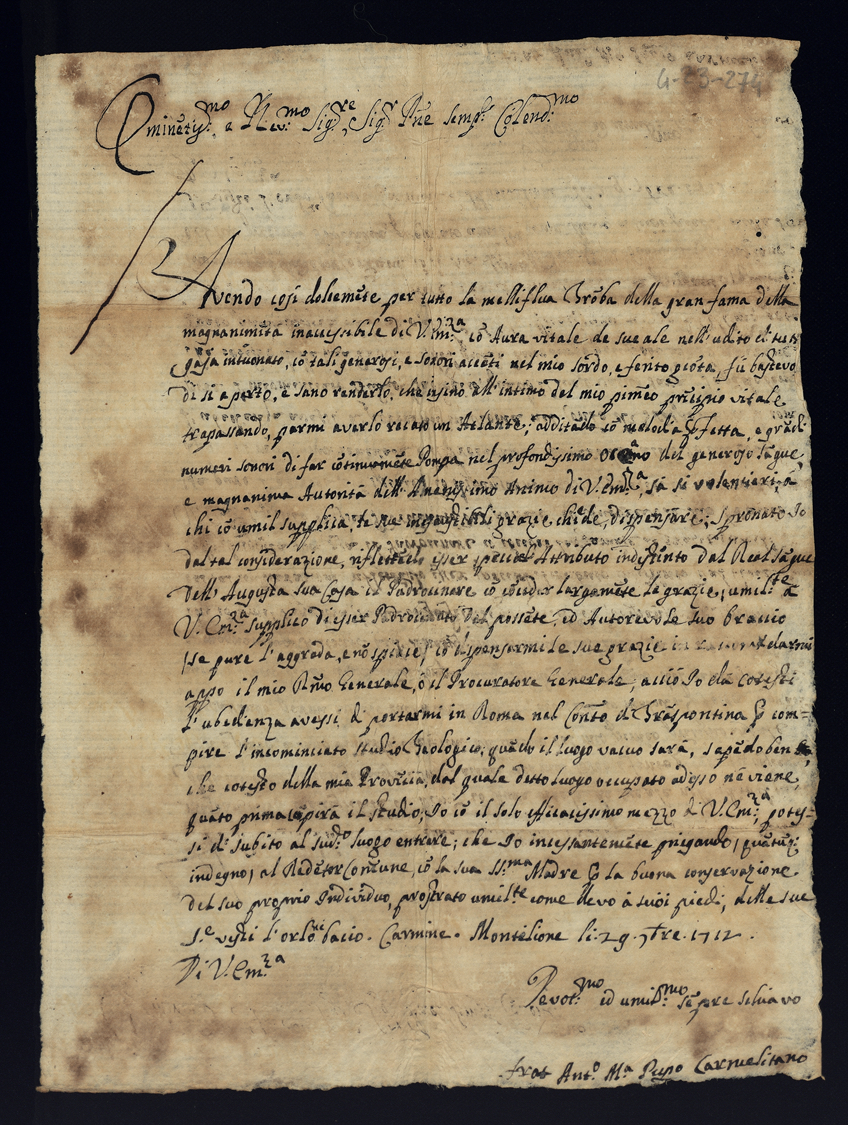 4-23-274
Eminetis.mo e Rev.mo Sig.re, Sig.r Pne semp.e Colend.mo
Avendo così dolcemēte per tutto la melliflua Trōba della gran fama della
magnanimità inaccessibile di V. Em.za cō Aura vitale de sue ale nell'udito di tutti
intuonato, cō tali generosi, e sonori accēti nel mio sordo, e ferito fù bastevo
di sì aperto, e sano renderlo, che insino all'intimo del mio vitale
trapassando, parmi averlo recato un Atlante; additādo cō melodia pfetta, e grādi
numeri sonori di far cōtinuamēte Pompa nel profondissimo oceāno del generoso sāgue
e magnanima Autorità dell' Animo di V. Em.za, sà sì volentieri, à
chi cō umil supplica te sue grazie chiede, dispenzare; Spronato Io
dal tal cōsiderazione, riflettēdo esser special Attributo indistinto dal Real sāgue
dell'Augusta sua Casa il Padrocinare cō cōceder largamēte le grazie, umil.te à
V. Em.za supplico di esser Padrocinato dal possēte, ed Autorevole suo braccio
(se pure l'aggrada, e nō spiace) cō dispensarmi le sue grazie in
appo il mio Rmo Generale, ò il Procuratore Generale, acciò Io da cotesti
l'ubedienza avessi di portarmi in Roma nel Conto di Traspontina p com=
pire l'incominciato studio Teologico, quādo il luogo vacuo sarà, sapēdo ben
che cotesto della mia Provincia, dal quale detto luogo occupato adisso nē viene,
quāto prima cōpirà il studio, Io cō il solo efficacissimo mezzo di V. Em.za potes=
si di subito al sud.o luogo entrare; che Io incessantemēte pregando, quātuq;
indegno, al Redētor Comune, cō la sua SS.ma Madre p la buona conservazione
del suo proprio Individuo, prostrato umil.te come devo à suoi piedi, delle sue
S.e vesti l'orlo ne bacio. Carmine. Montelione li 29 7bre 1712.
Di V. Em.za
Devot.mo ed umil.mo sēpre schiavo
frat Ant.o M.a Pupo Carmelitano